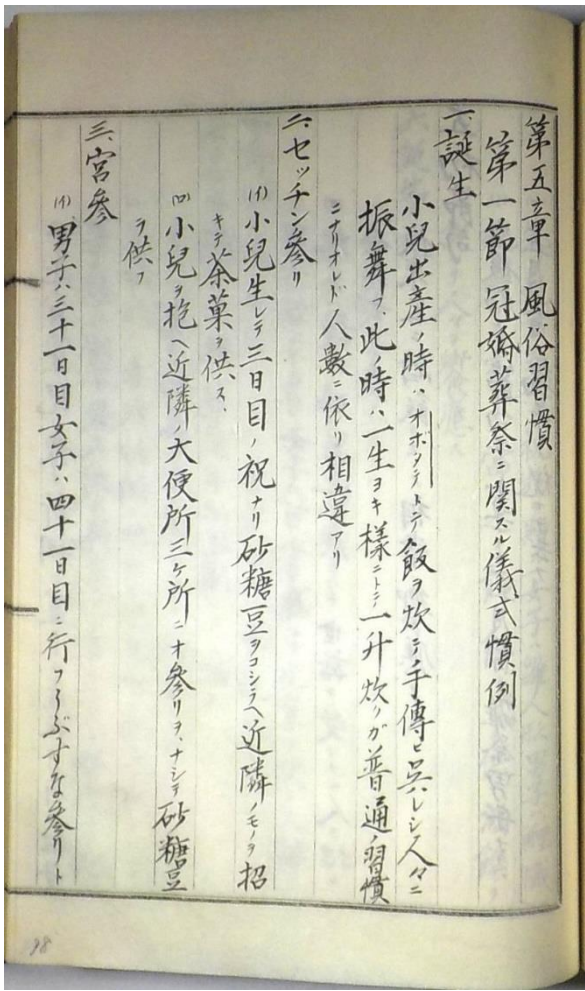 第五章 風俗習慣
第一節 冠婚葬祭ニ関スル儀式慣例
一、誕生
小兒出産ノ時ハオボタテトテ飯ヲ炊キテ手傳ヒ呉レシ人々ニ
振舞フ、此ノ時ハ一生ヨキ様ニトテ一升炊クガ普通ノ習慣
ニナリオレド人數ニ依リ相違アリ
二、セッチン參リ
(イ)小兒生レテ三日目ノ祝ナリ砂糖豆ヲコシラヘ近隣ノモノヲ招
キテ茶菓ヲ供ス、
(ロ)小兒ヲ抱ヘ近隣ノ大便所三ヶ所ニオ參リヲナシテ砂糖豆
ヲ供フ
三、宮參
(イ)男子ハ三十一日目女子ハ四十一日目ニ行フうぶすな參リト
98